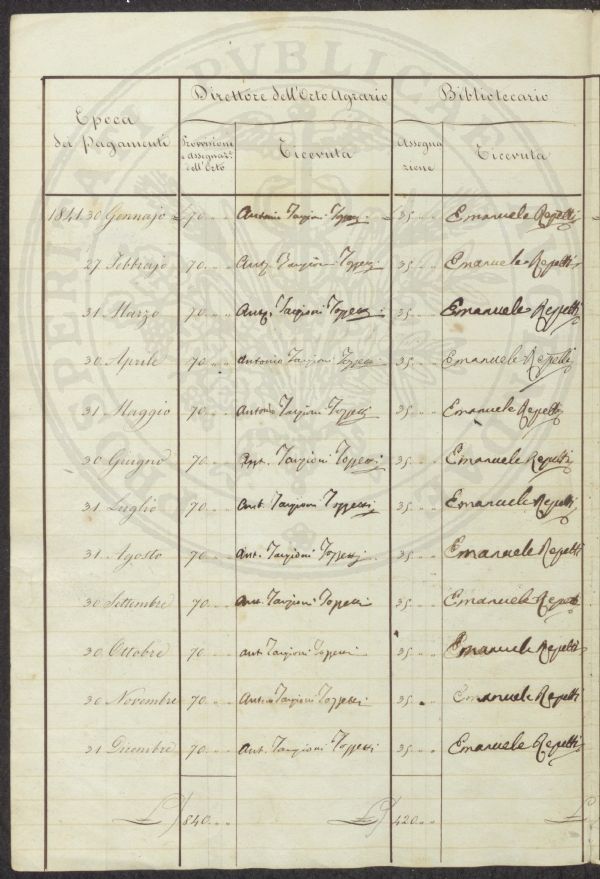 Epoca dei Pagamenti | Direttore dell'Orto Agrario | Bibliotecario
Provvisione e assegnaz.e dell'Orto | Ricevuta | Assegnazione | Ricevuta
1841. 30 Gennajo £ 70. „ „ Antonio Targioni Tozzetti £ 35. „ „ Emanuele Repetti
27 Febbrajo 70. „ „ Ant. Targioni Tozzetti 35. „ „ Emanuele Repetti
31 Marzo 70. „ „ Ant. Targioni Tozzetti 35. „ „ Emanuele Repetti
30 Aprile 70. „ „ Antonio Targioni Tozzetti 35. „ „ Emanuele Repetti
31 Maggio 70. „ „ Antonio Targioni Tozzetti 35. „ „ Emanuele Repetti
30 Giugno 70. „ „ Ant. Targioni Tozzetti 35. „ „ Emanuele Repetti
31 Luglio 70. „ „ Ant. Targioni Tozzetti 35. „ „ Emanuele Repetti
31 Agosto 70. „ „ Ant. Targioni Tozzetti 35. „ „ Emanuele Repetti
30 Settembre 70. „ „ Ant. Targioni Tozzetti 35. „ „ Emanuele Repetti
30 Ottobre 70. „ „ Ant. Targioni Tozzetti 35. „ „ Emanuele Repetti
30 Novembre 70. „ „ Ant. Targioni Tozzetti 35. „ „ Emanuele Repetti
31 Dicembre 70. „ „ Ant. Targioni Tozzetti 35. „ „ Emanuele Repetti
£ 840. „ „ £ 420. „ „ £